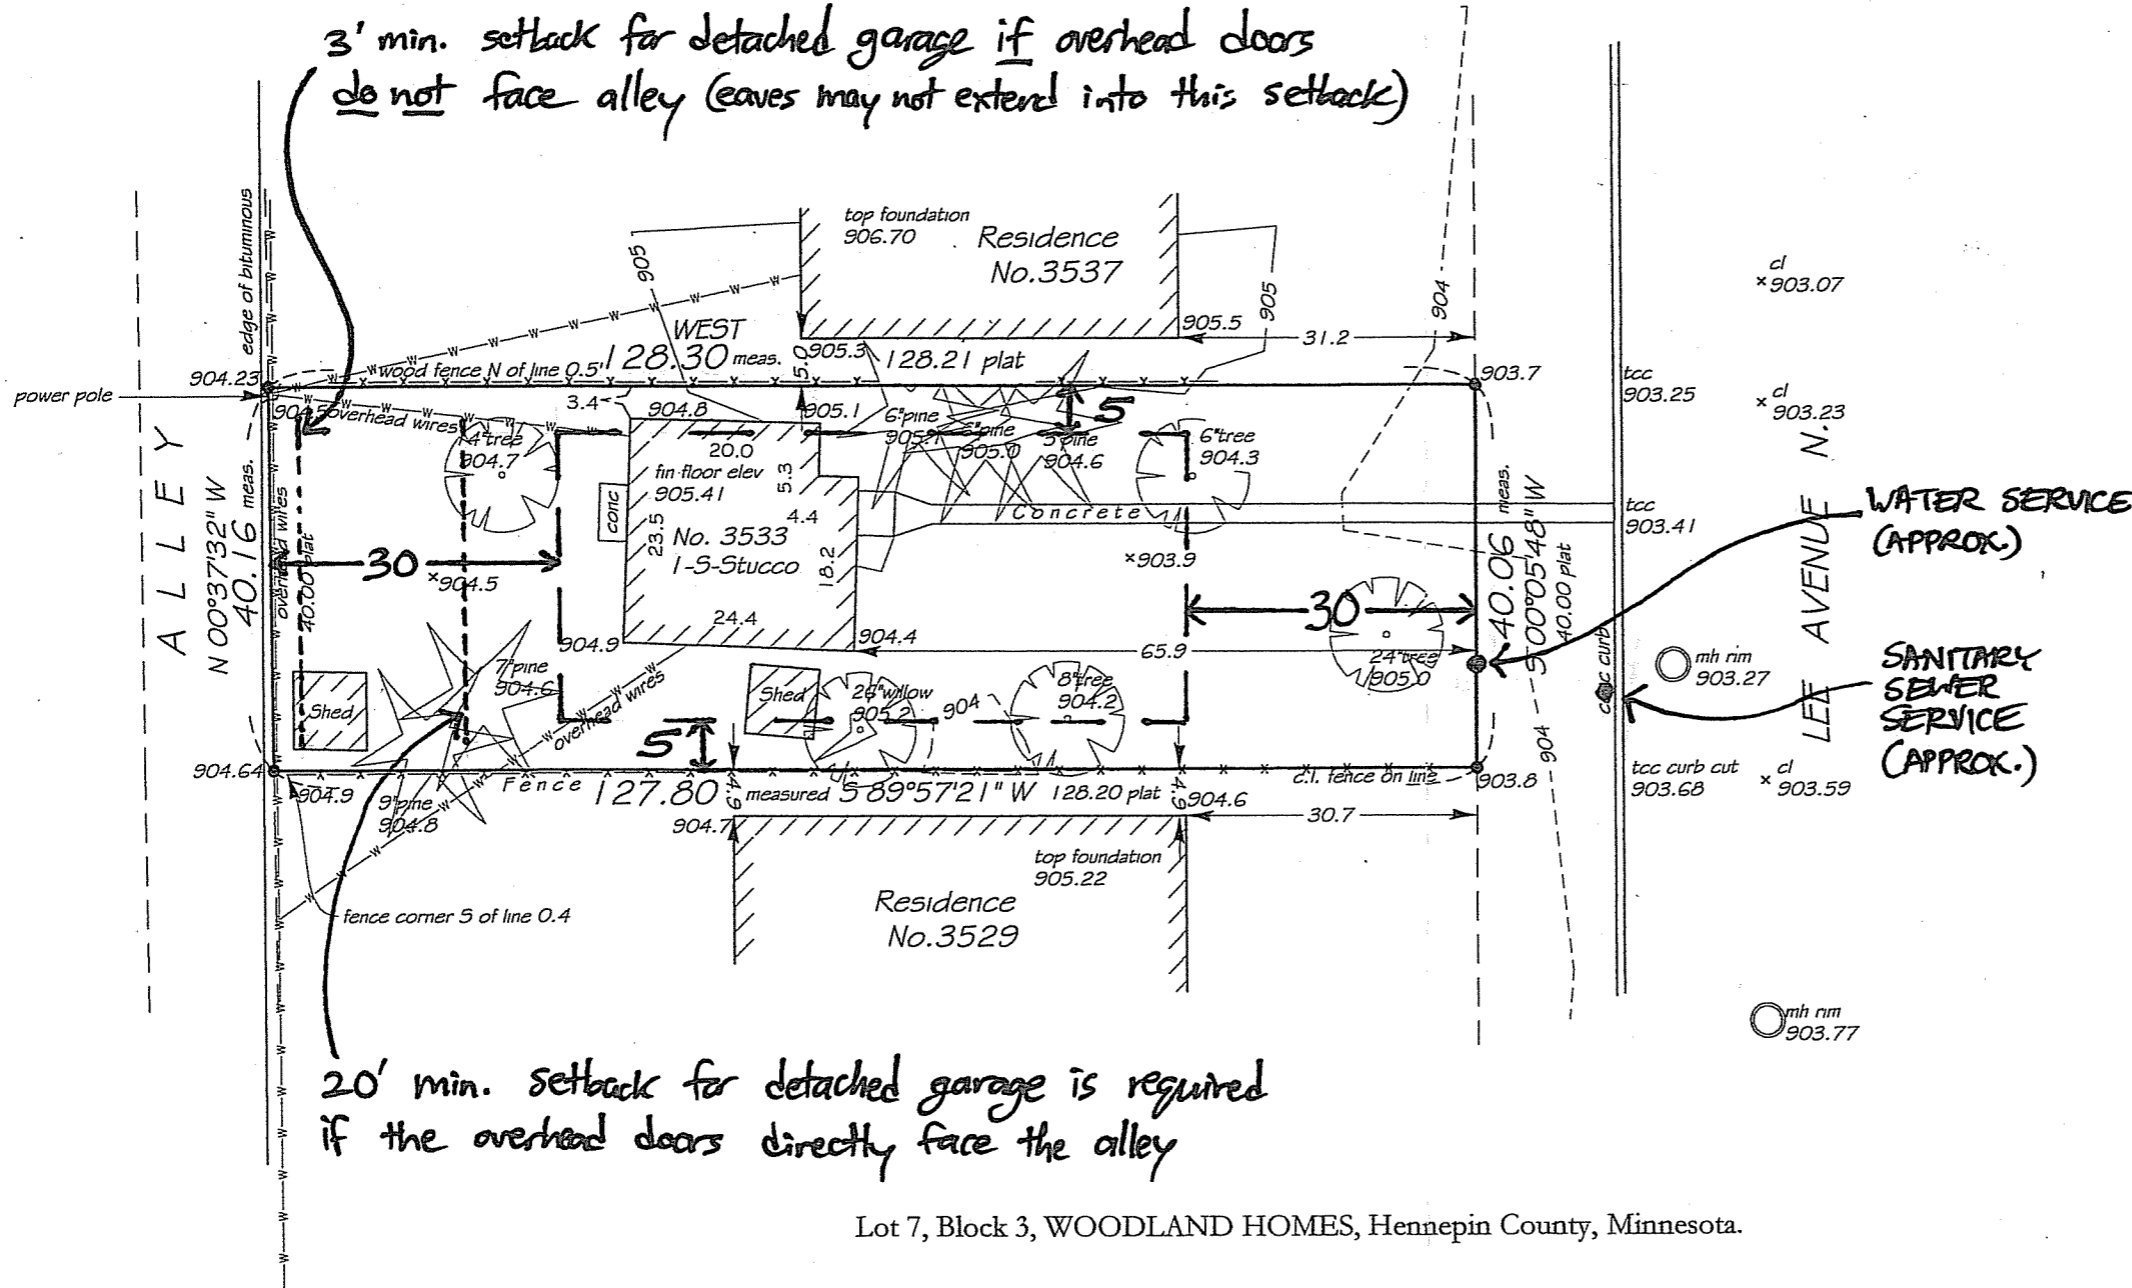 3' min. setback for detached garage if overhead doors
do not face alley (eaves may not extend into this setback)
edge of bituminous
top foundation
906.70
Residence
No.3537
905
905
904
cl
903.07
WEST
128.30 meas.
128.21 plat
5.0
905.3
905.5
31.2
wood fence N of line 0.5'
904.23
903.7
tcc
903.25
cl
903.23
power pole
904.5
overhead wires
3.4
904.8
905.1
5
6"pine
905.1
6"pine
905.0
5"pine
904.6
6"tree
904.3
4"tree
904.7
20.0
fin floor elev
905.41
5.3
conc
23.5
No. 3533
1-S-Stucco
4.4
18.2
24.4
Concrete
tcc
903.41
WATER SERVICE
(APPROX.)
ALLEY
N 00°37'32" W
40.16 meas.
overhead wires
40.00 plat
30
904.5
903.9
30
40.06 meas.
S 00°05'48" W
40.00 plat
LEE AVENUE N.
904.9
904.4
65.9
24"tree
905.0
conc curb
mh rim
903.27
SANITARY
SEWER
SERVICE
(APPROX.)
Shed
7"pine
904.6
overhead wires
Shed
26"willow
905.2
904
8"tree
904.2
5
904
904.64
904.9
9"pine
904.8
Fence
127.80 measured
S 89°57'21" W
128.20 plat
c.l. fence on line
903.8
tcc curb cut
903.68
cl
903.59
4.9
4.9
904.7
904.6
30.7
top foundation
905.22
Residence
No.3529
fence corner S of line 0.4
mh rim
903.77
20' min. setback for detached garage is required
if the overhead doors directly face the alley
Lot 7, Block 3, WOODLAND HOMES, Hennepin County, Minnesota.